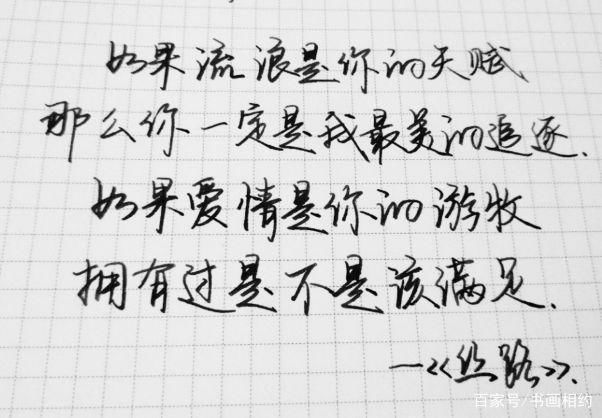 如果流浪是你的天赋
那么你一定是我最美的追逐.
如果爱情是你的游牧
拥有过是不是该满足.
—《丝路》.
百家号/书画相约